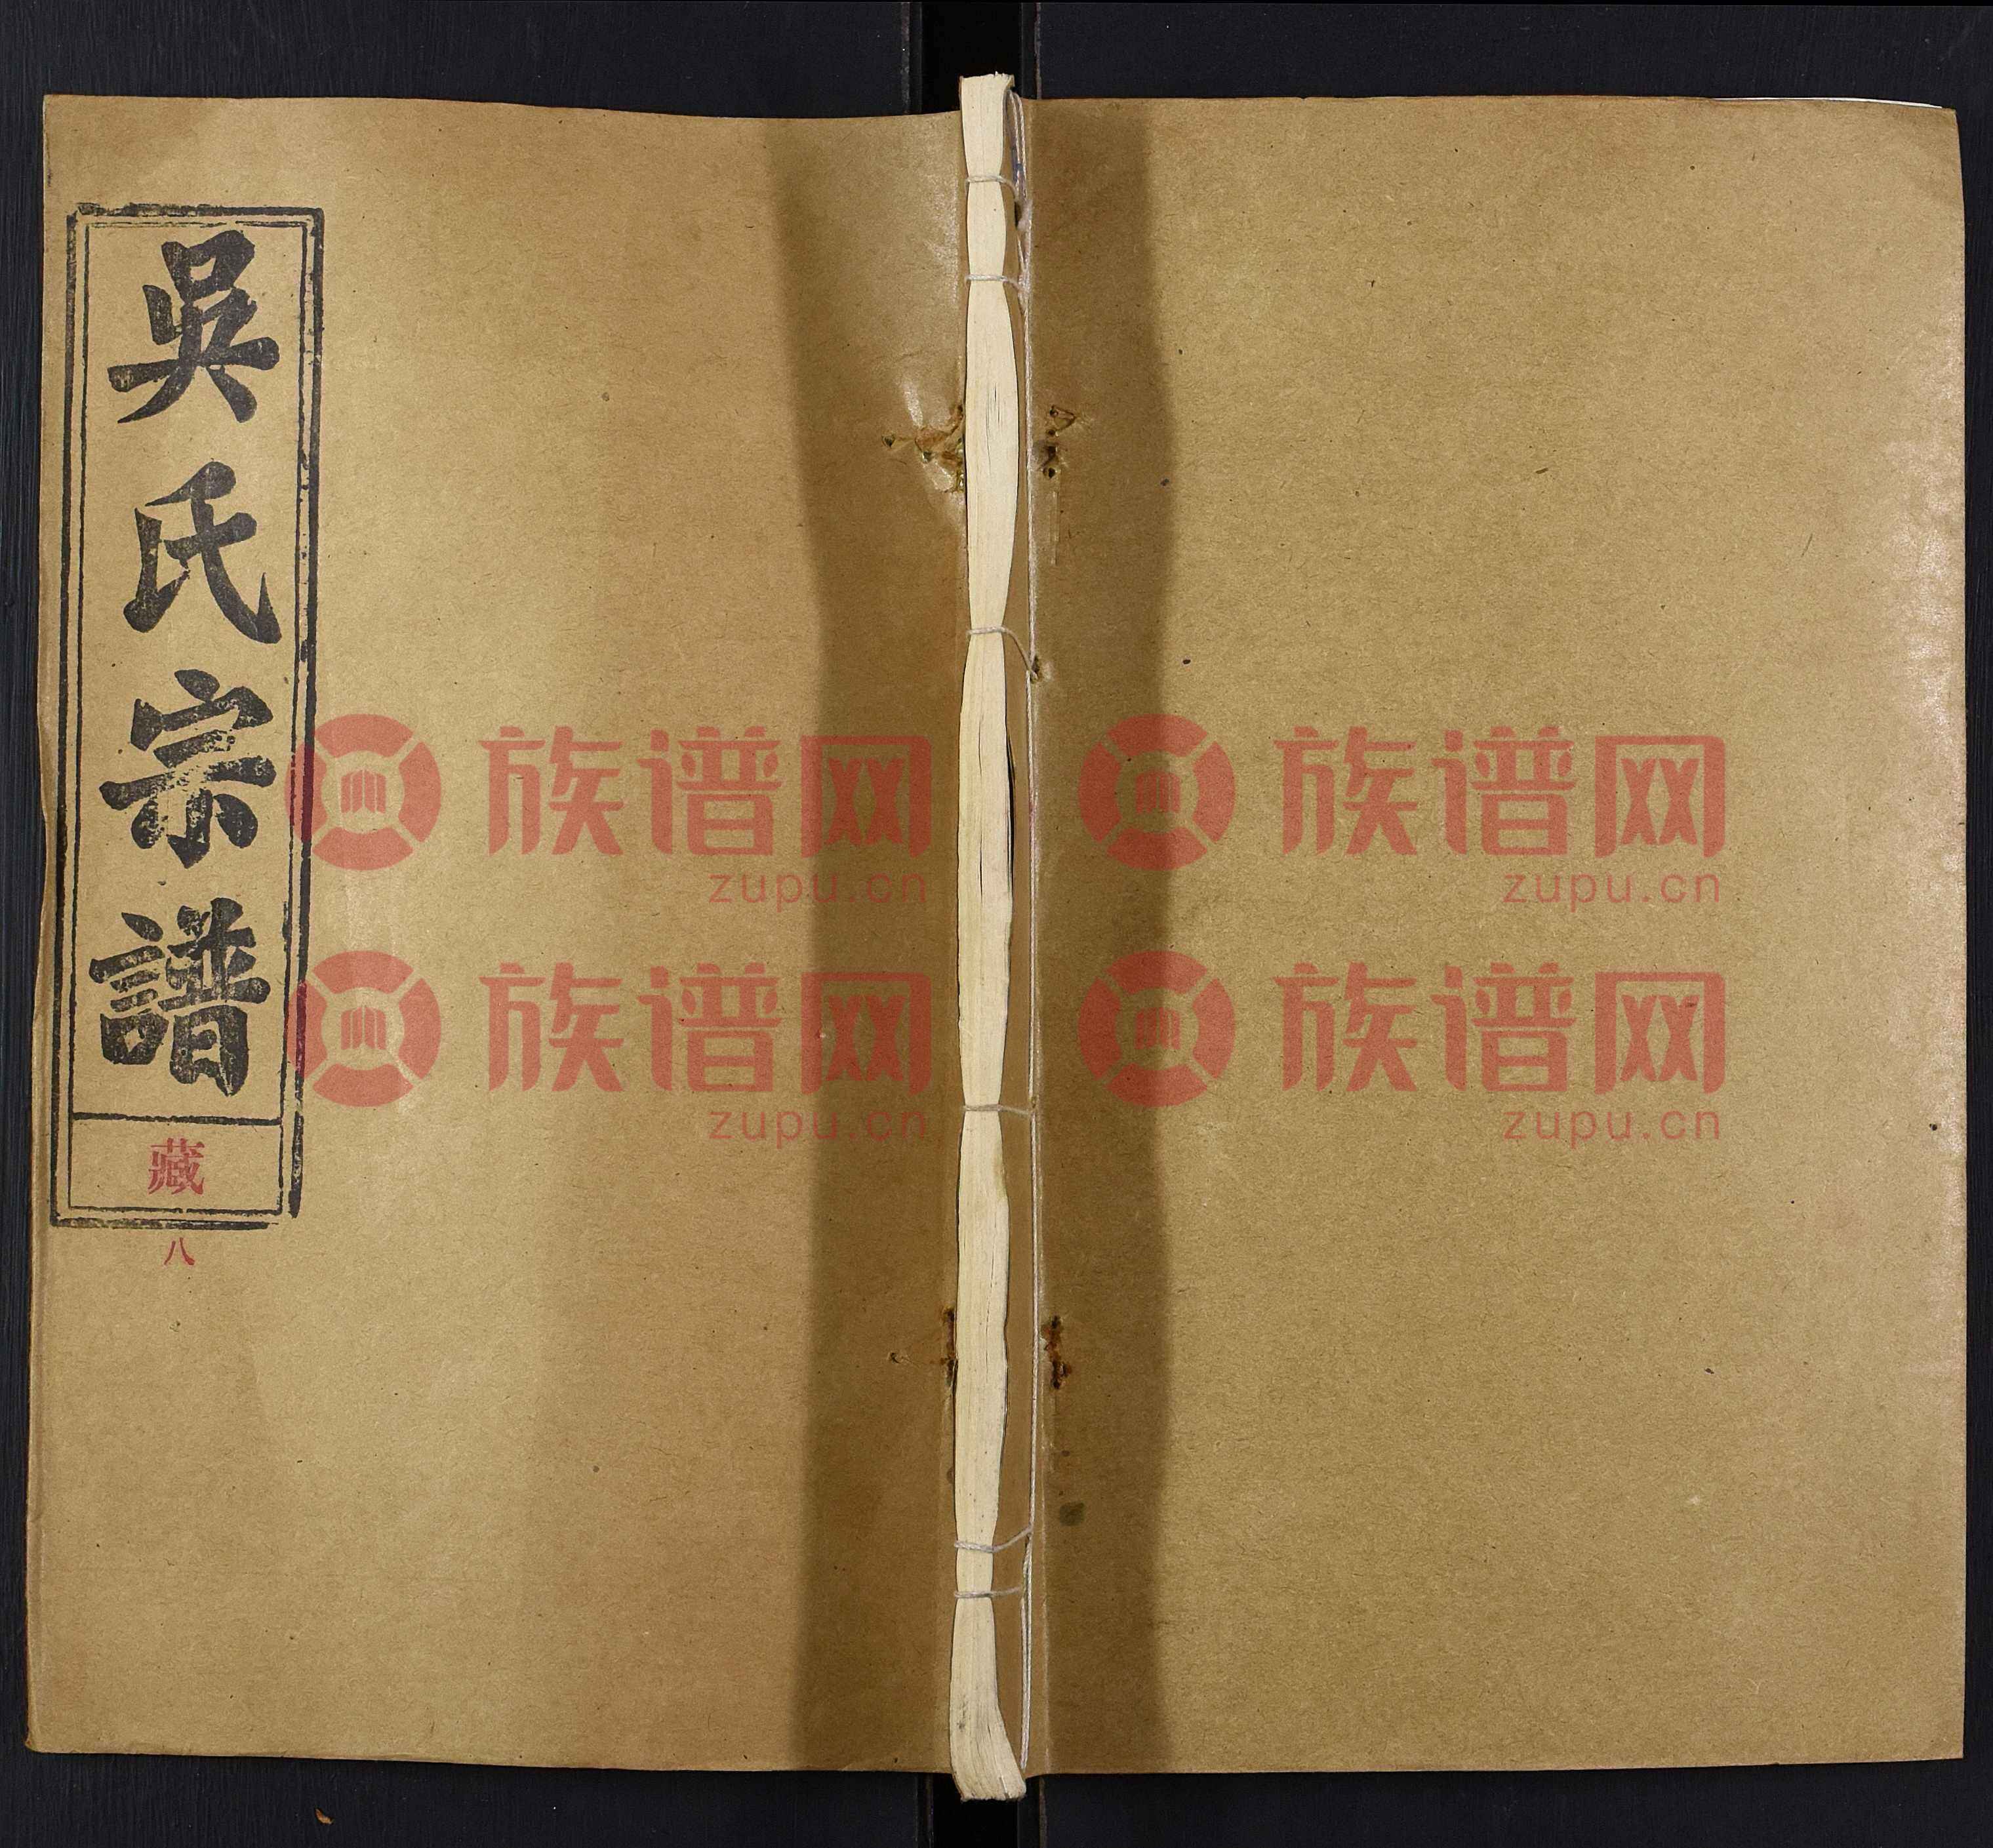 吳氏宗譜
藏
八
族谱网 族谱网
zupu.cn zupu.cn
族谱网 族谱网
zupu.cn zupu.cn